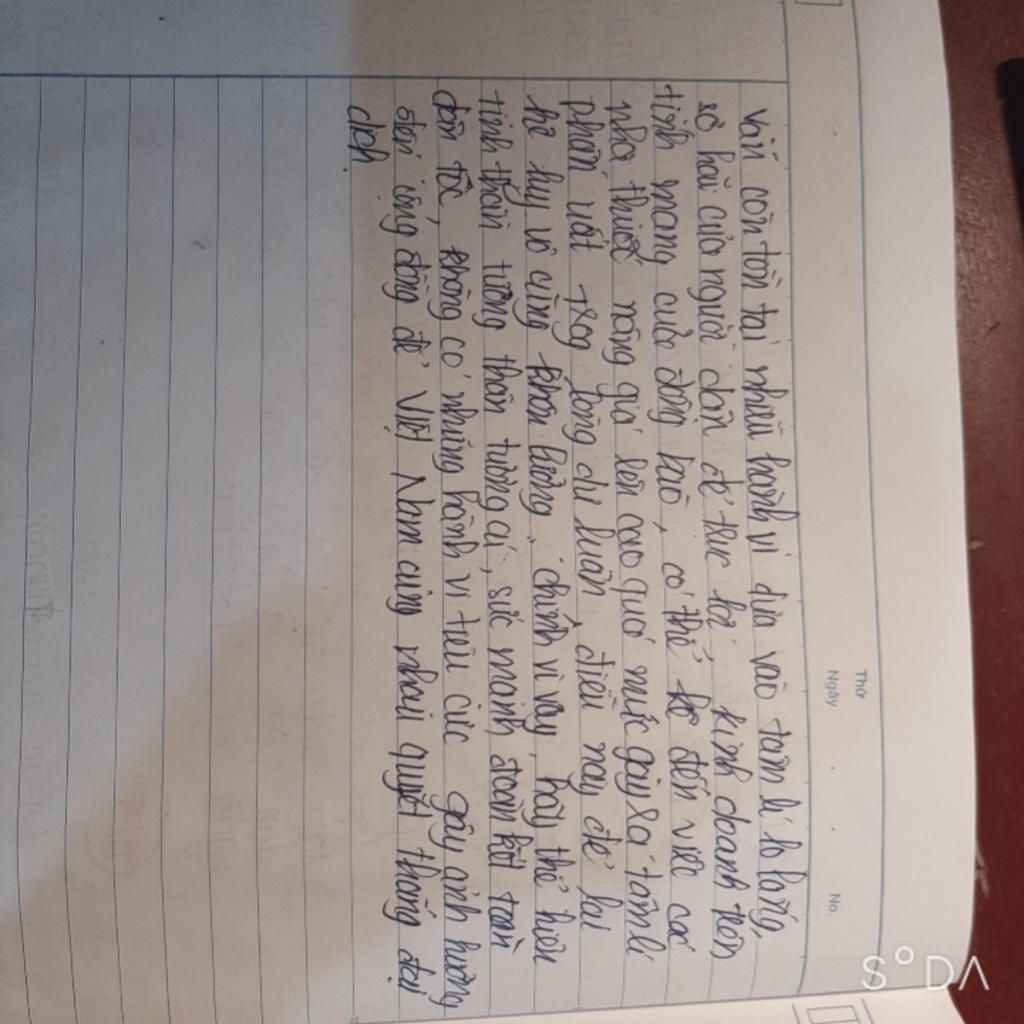 Thứ
Ngày
No.
Vẫn còn tồn tại nhiều hành vi dựa vào tâm lí lo lắng,
sợ hãi của người dân để trục lợi, kinh doanh trên
tính mạng của đồng bào, có thể kể đến việc các
nhà thuốc nâng giá lên cao quá mức gây ra tâm lí
phẫn uất trong lòng dư luận, điều này để lại
hệ lụy vô cùng khôn lường, chính vì vậy, hãy thể hiện
tinh thần tương thân tương ái, sức mạnh đoàn kết toàn
dân tộc, không có những hành vi tiêu cực gây ảnh hưởng
đến cộng đồng để Việt Nam cùng nhau quyết thắng đại
dịch
SODA